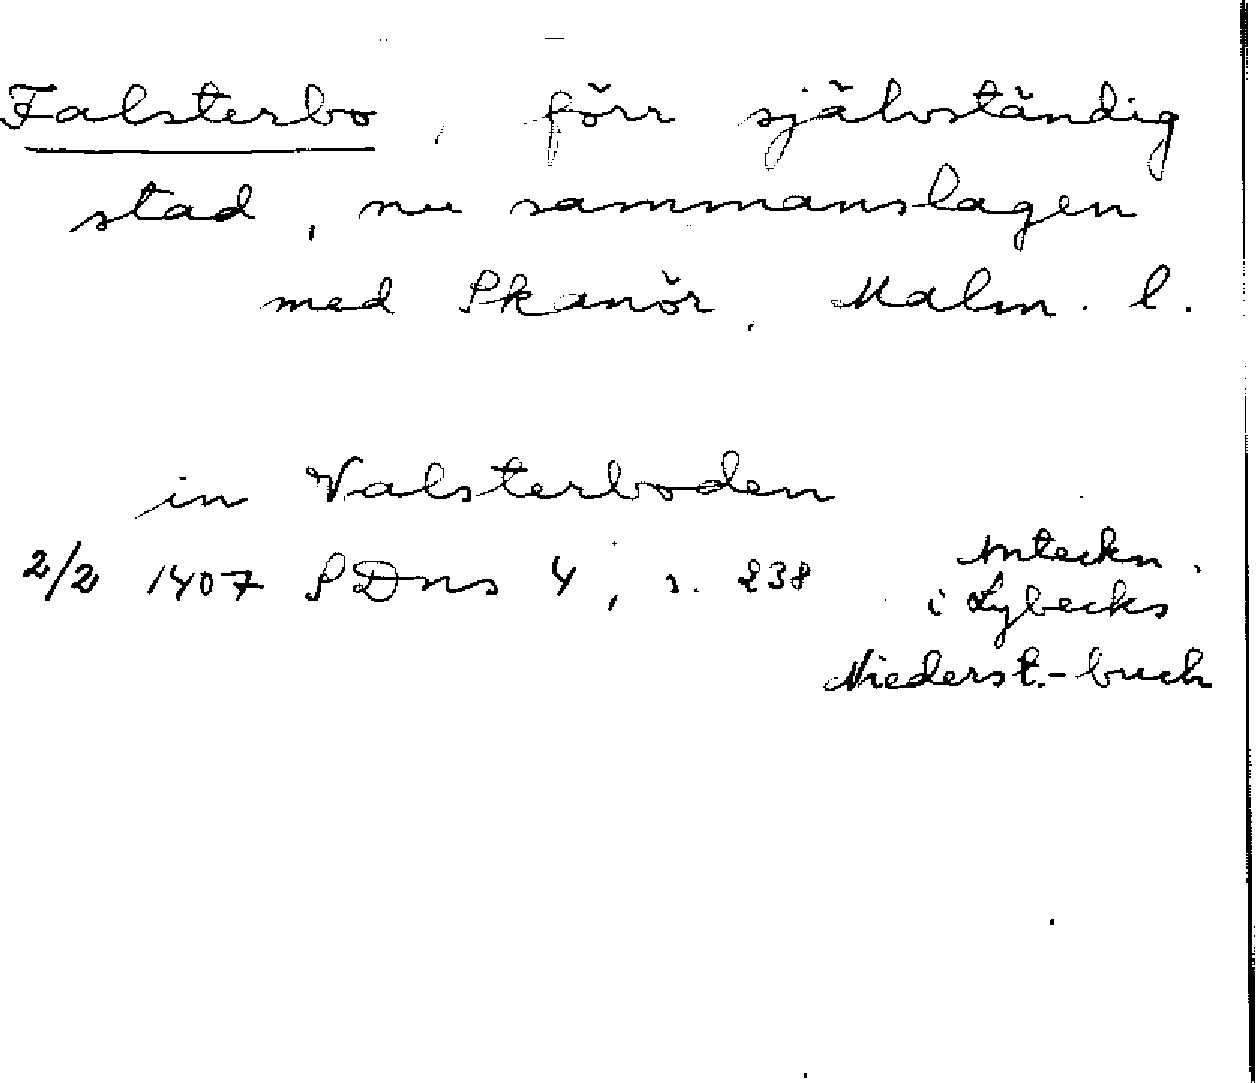 Falsterbo, förr självständig
stad, nu sammanslagen
med Skanör, Malm. l.
in Valsterboden
2/2 1407 SDns 4, s. 238
Anteckn.
i Lybecks
Niederst.-buch